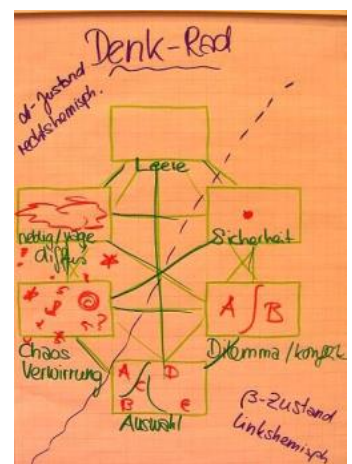 Denk-Rad
α-Zustand
rechtshemisph.
Leere
neblig/vage
diffus
Sicherheit
A B
?
Chaos
Verwirrung
Dilemma/Konflikt
A D
C
B E
Auswahl
β-Zustand
linkshemisph